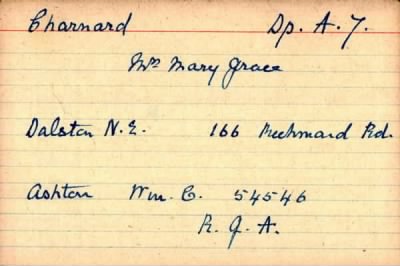 Charnard Dp. A. 7.
Mrs Mary Grace
Dalston N.E. 166 Richmard Rd.
Ashton Wm. C. 54546
R. G. A.